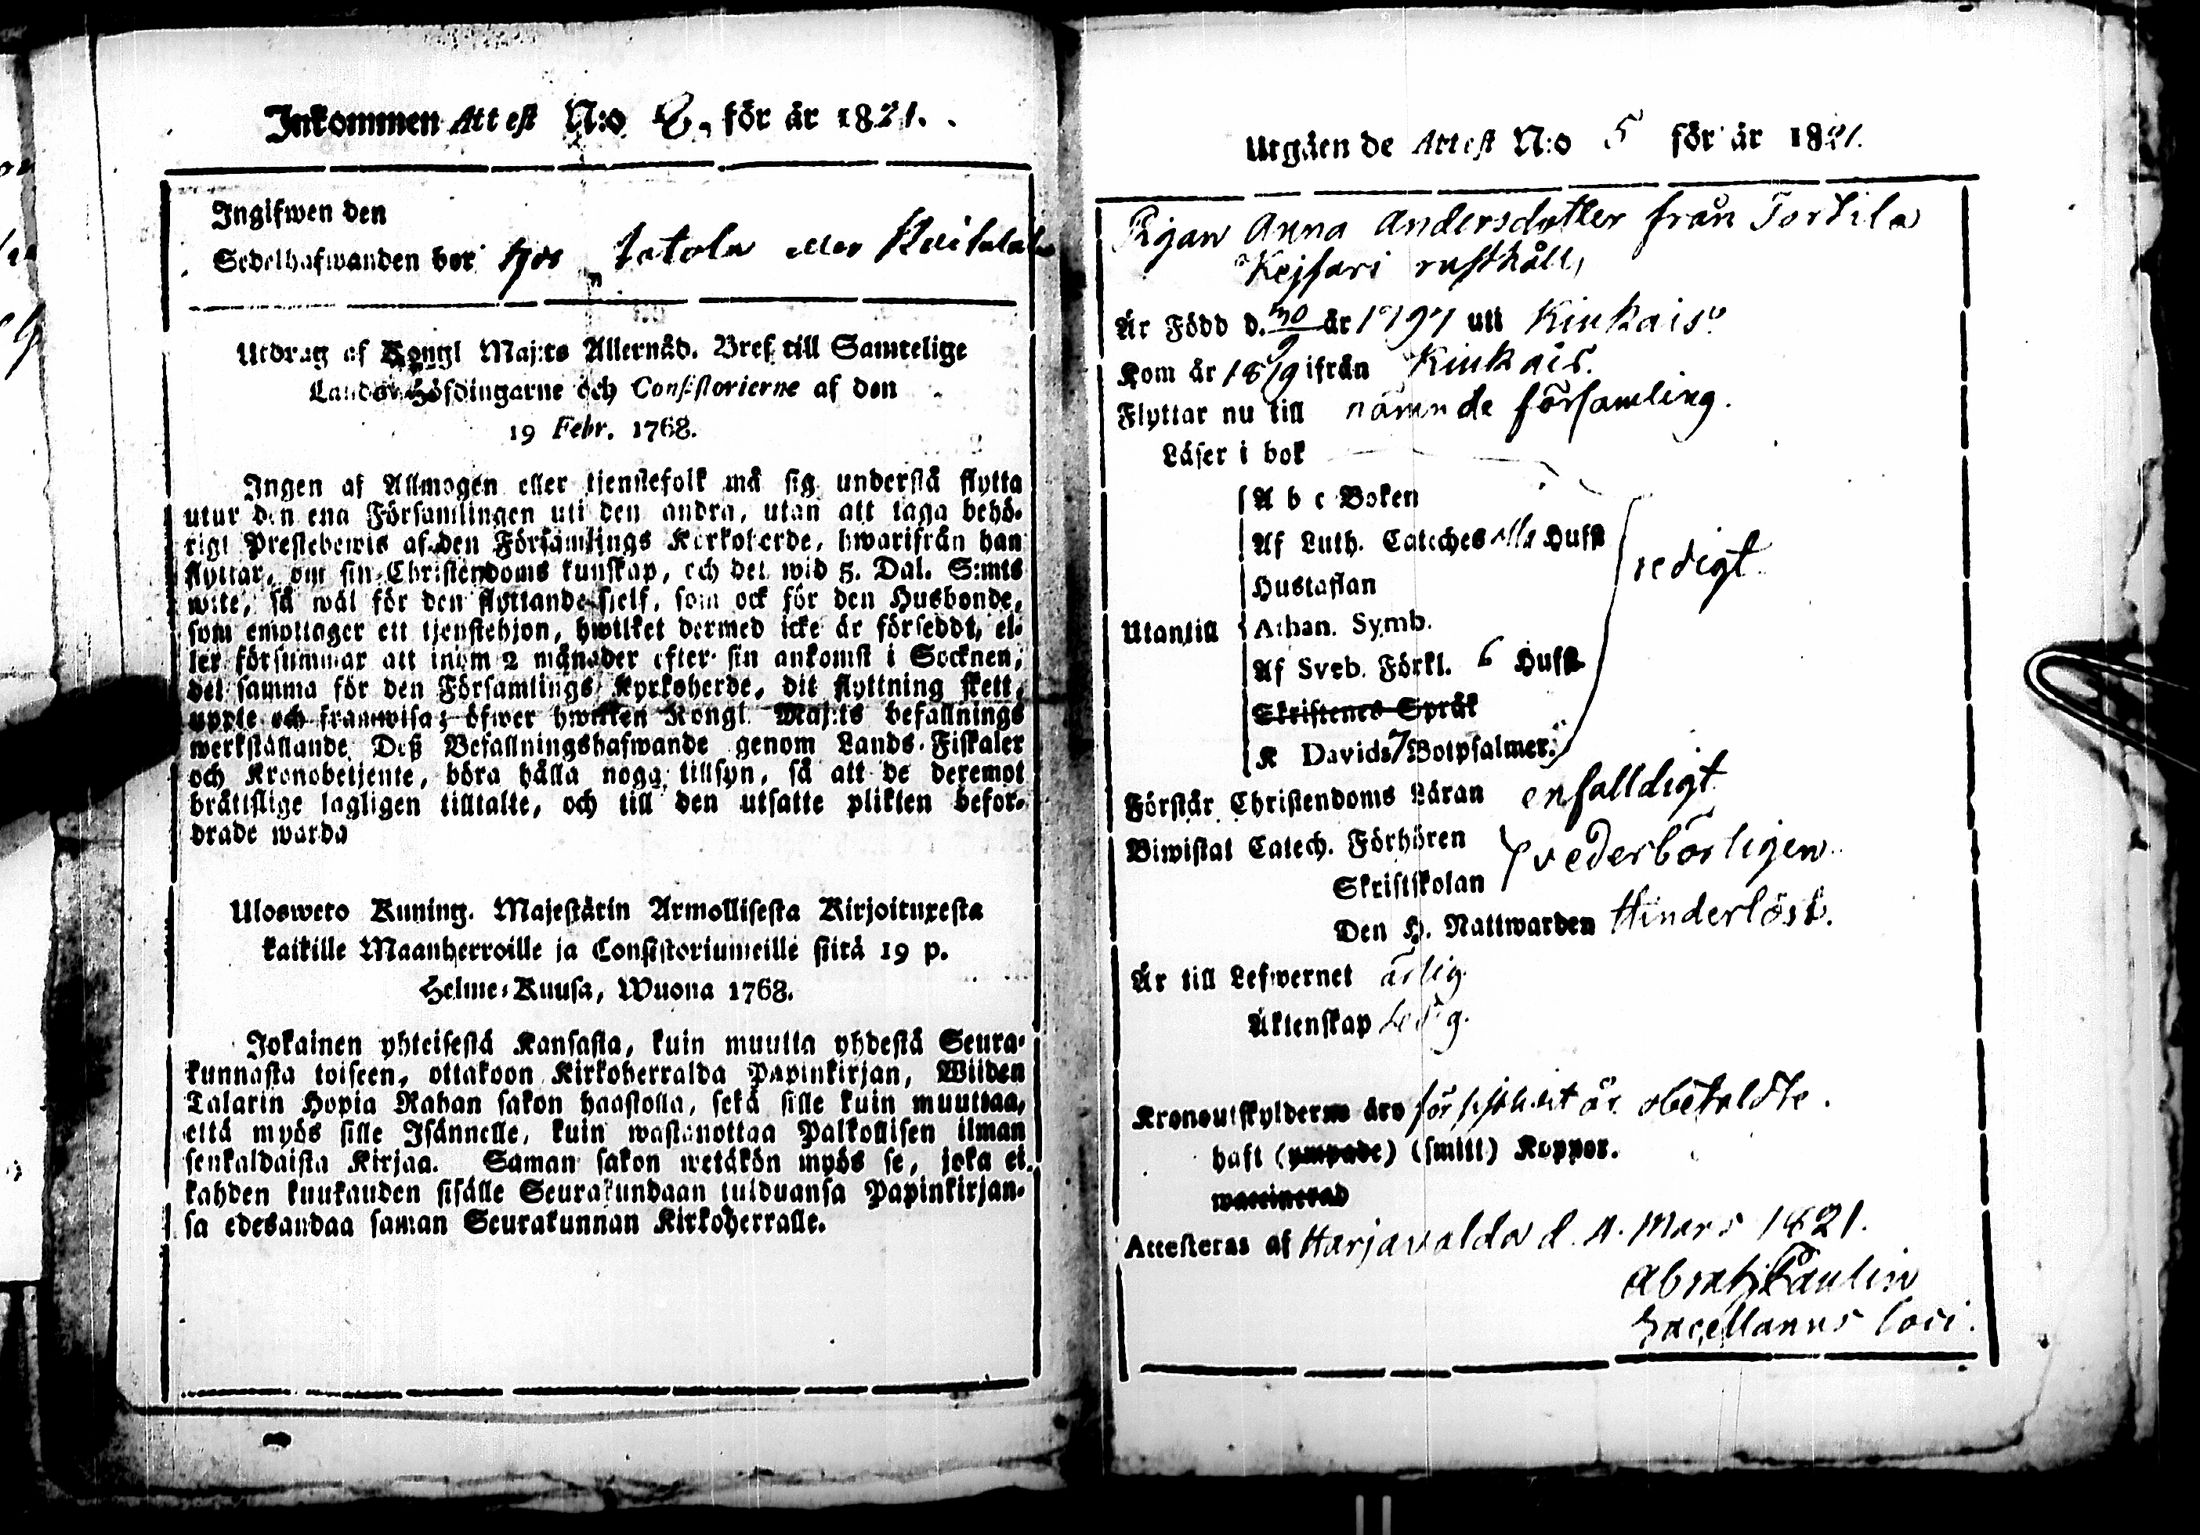 Inkommen Attest N:o 8, för år 1821.
Ingifwen den
Sedelhafwanden bor hos Jatola eller
Utdrag af Kongl Maj:ts Allernåd. Bref till Samtelige
Lands-Höfdingarne och Consistorierne af den
19 Febr. 1768.
Ingen af Allmogen eller tjenstefolk må sig understå flytta
utur den ena Församlingen uti den andra, utan att taga behö-
rigt Prestebewis af den Församlings Kyrkoherde, hwarifrån han
flyttar, om sin Christendoms kunskap, och det wid 5. Dal. S:mts
wite, så wäl för den flyttande sjelf, som ock för den Husbonde,
som emottager ett tjenstehjon, hwilket dermed icke är försedt, el-
ler försummar att inom 2 månader efter sin ankomst i Socknen,
det samma för den Församlings Kyrkoherde, dit flyttning skett,
uppte och framwisa; öfwer hwilken Kongl. Maj:ts befallnings
werkställande Deß Befallningshafwande genom Lands-Fiskaler
och Kronobetjente, böra hålla noga tillsyn, så att de deremot
bråttslige lagligen tilltalte, och till den utsatte plikten befor-
drade warda
Uloswето Kuning. Majestätin Armollisesta Kirjoituxesta
kaikille Maanherroille ja Consistoriumeille siitä 19 p.
Helme-Kuusa, Wuona 1768.
Jokainen yhteisestä Kansasta, kuin muutta yhdestä Seura-
kunnasta toiseen, ottakoon Kirkoherralda Papinkirjan, Wiiden
Talarin Hopia Rahan sakon haastolla, sekä sille kuin muuttaa,
että myös sille Isännelle, kuin wastanottaa Palkollisen ilman
senkaldaista Kirjaa. Saman sakon wetäkön myös se, joka ei
kahden kuukauden sisälle Seurakundaan tulduansa Papinkirjan-
sa edesandaa saman Seurakunnan Kirkoherralle.
Utgåen de Attest N:o 5 för år 1821.
Pigan Anna Andersdotter från Torttila
Kejsari rusthåll,
Är Född d. 30/9 år 1797 uti Kiukais
Kom år 1819 ifrån Kiukais.
Flyttar nu till nämnde församling.
Läser i bok
A b c Boken
Af Luth. Cateches alla Hufst
Hustaflan
redigt
Utantill Athan. Symb.
Af Sveb. Förkl. 6 Hufst
Skriftenes Språk
K Davids 7 Botpsalmer.
Förstår Christendoms Läran enfalldigt
Biwistat Catech. Förhören
vederbörligen
Skriftskolan
Den H. Nattwarden Hinderlöst.
Är till Lefwernet ärlig
Äktenskap Ledig.
Kronoutskylderne äro för sistledit år obetaldte.
haft (ympade) (smitt) Koppor.
waccinerad
Attesteras af Harjavalda d. 4. Mars 1821.
Abrah. Paulin
Sacellanus loci.